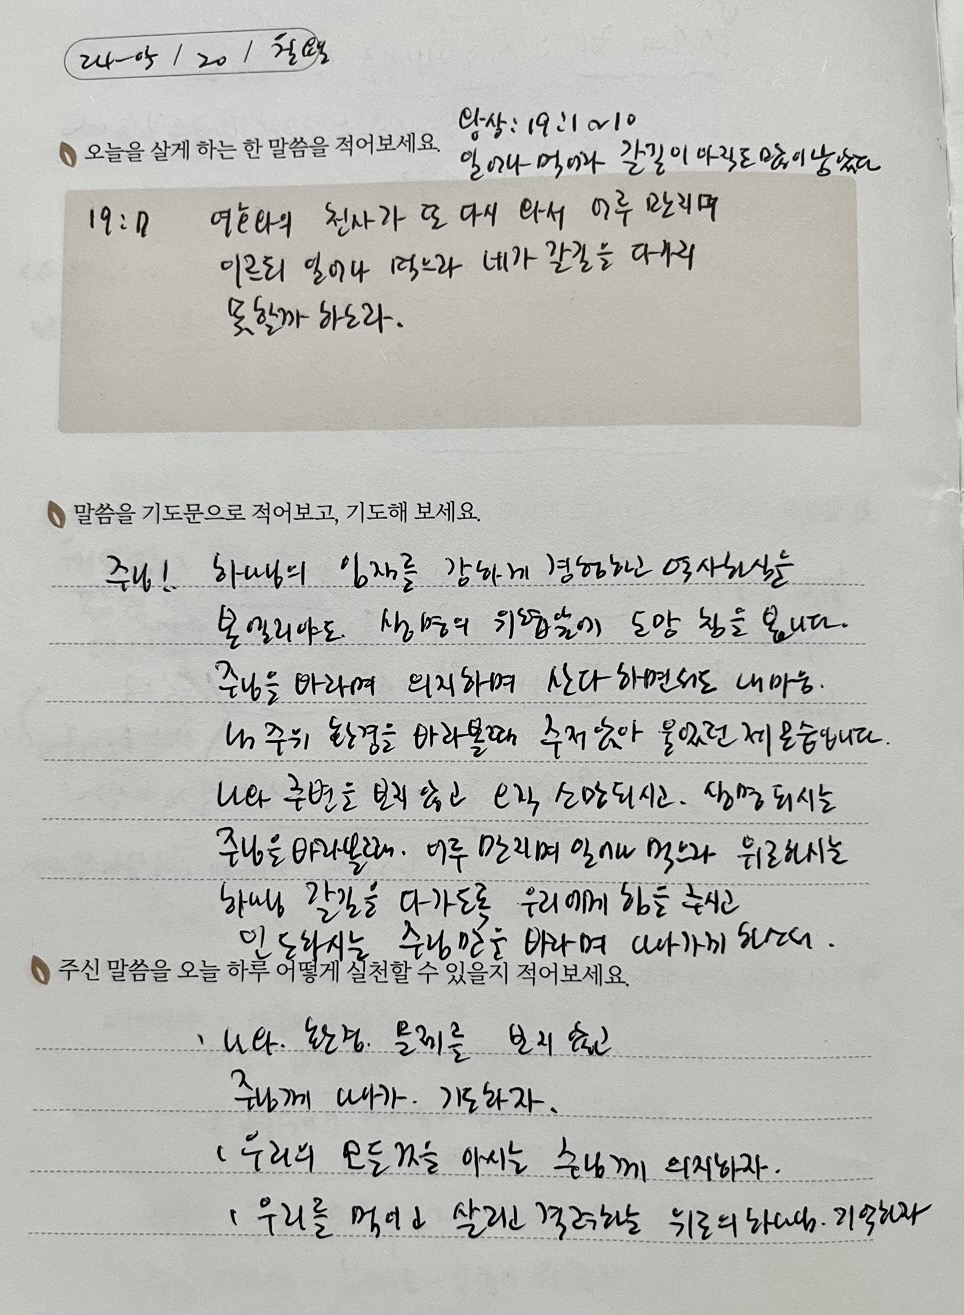 오늘을 살게 하는 한 말씀을 적어보세요.
왕상: 19:1~10
일어나 먹어라 갈길이 아직도 많이 남았다
19:7 여호와의 천사가 또 다시 와서 어루 만지며
이르되 일어나 먹으라 네가 갈길을 다가지
못할까 하노라.
말씀을 기도문으로 적어보고, 기도해 보세요.
주님! 하나님의 임재를 강하게 경험하고 역사하심을
본 엘리야도 생명의 위협앞에 도망 침을 봅니다.
주님을 바라며 의지하며 산다 하면서도 내마음.
내 주위 환경을 바라볼때 주저 앉아 울었던 제 모습입니다.
나와 주변을 보지 않고 오직 소망되시고. 생명 되시는
주님을 바라볼때. 어루 만지며 일어나 먹으라 위로하시는
하나님 갈길을 다가도록 우리에게 힘을 주시고
인도하시는 주님만을 바라며 나아가게 하소서.
주신 말씀을 오늘 하루 어떻게 실천할 수 있을지 적어보세요.
나와. 환경. 문제를 보지 않고
주님께 나아가. 기도하자.
우리의 모든것을 아시는 주님께 의지하자.
우리를 먹이고 살리고 격려하는 위로의 하나님. 기억하자